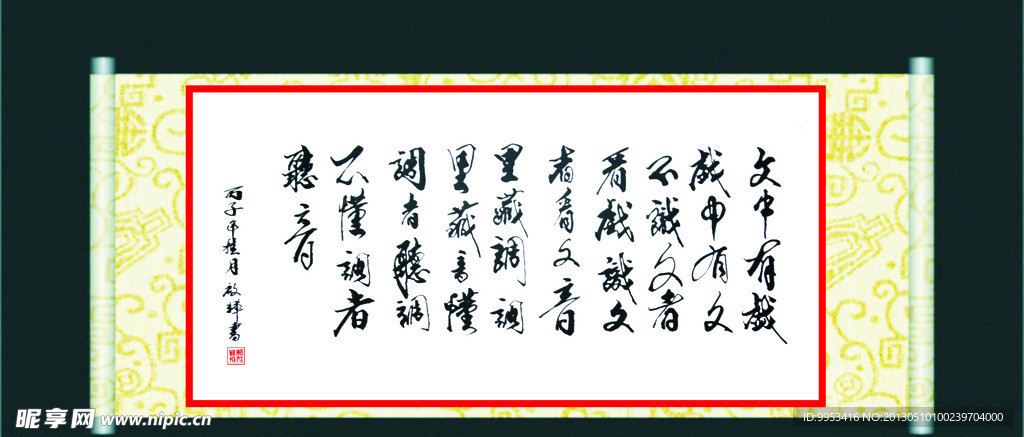 文中有戲
戲中有文
不識文者
看戲識文
者看文音
里藏調調
里藏音懂
調者聽調
不懂調者
聽音
丙子年桂月書
昵享网 www.nipic.cn
ID:9953416 NO:20130510100239704000